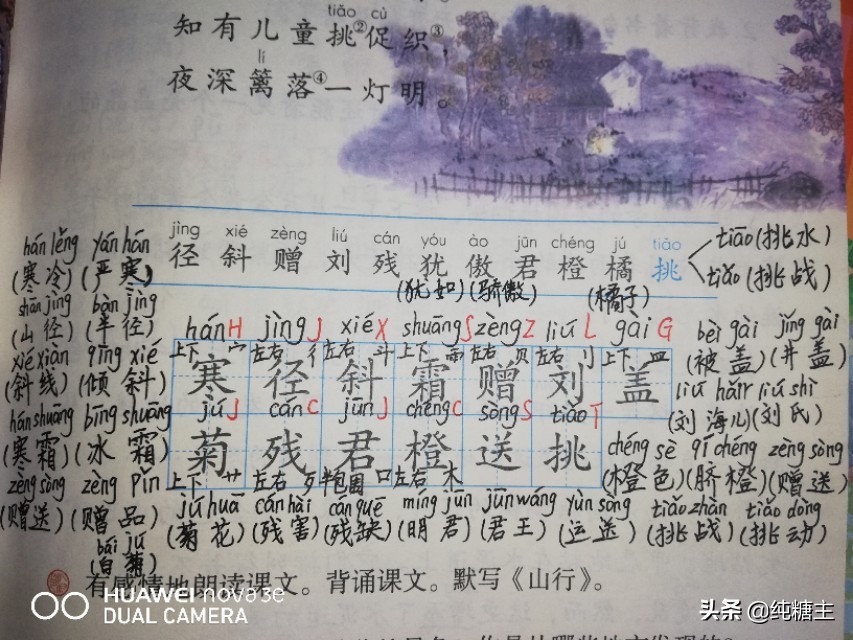 tiǎo cù
知有儿童挑②促织③,
lí
夜深篱落④一灯明。
jìng xié zèng liú cán yóu ào jūn chéng jú tiǎo
径 斜 赠 刘 残 犹 傲 君 橙 橘 挑
tiāo(挑水)
tiǎo(挑战)
(犹如)(骄傲) (橘子)
hán lěng yán hán
(寒冷)(严寒)
shān jìng bàn jìng
(山径)(半径)
xié xiàn qīng xié
(斜线)(倾斜)
hán shuāng bīng shuāng
(寒霜)(冰霜)
zèng sòng zèng pǐn
(赠送)(赠品)
bái jú
(白菊)
hán H jìng J xié X shuāng S zèng Z liú L gài G
上下 宀 左右 彳 左右 斗 上下 雨 左右 贝 左右 刂 上下 皿
寒 径 斜 霜 赠 刘 盖
jú J cán C jūn J chéng C sòng S tiǎo T
菊 残 君 橙 送 挑
上下 艹 左右 歹 半包围 口 左右 木
bèi gài jǐng gài
(被盖)(井盖)
liú hǎir liú shì
(刘海儿)(刘氏)
chéng sè qí chéng zèng sòng
(橙色)(脐橙)(赠送)
jú huā cán hài cán quē míng jūn jūn wáng yùn sòng tiǎo zhàn tiǎo dòng
(菊花)(残害)(残缺)(明君)(君王)(运送)(挑战)(挑动)
有感情地朗读课文。背诵课文。默写《山行》。
HUAWEI nova 3e
DUAL CAMERA
头条 @纯糖主